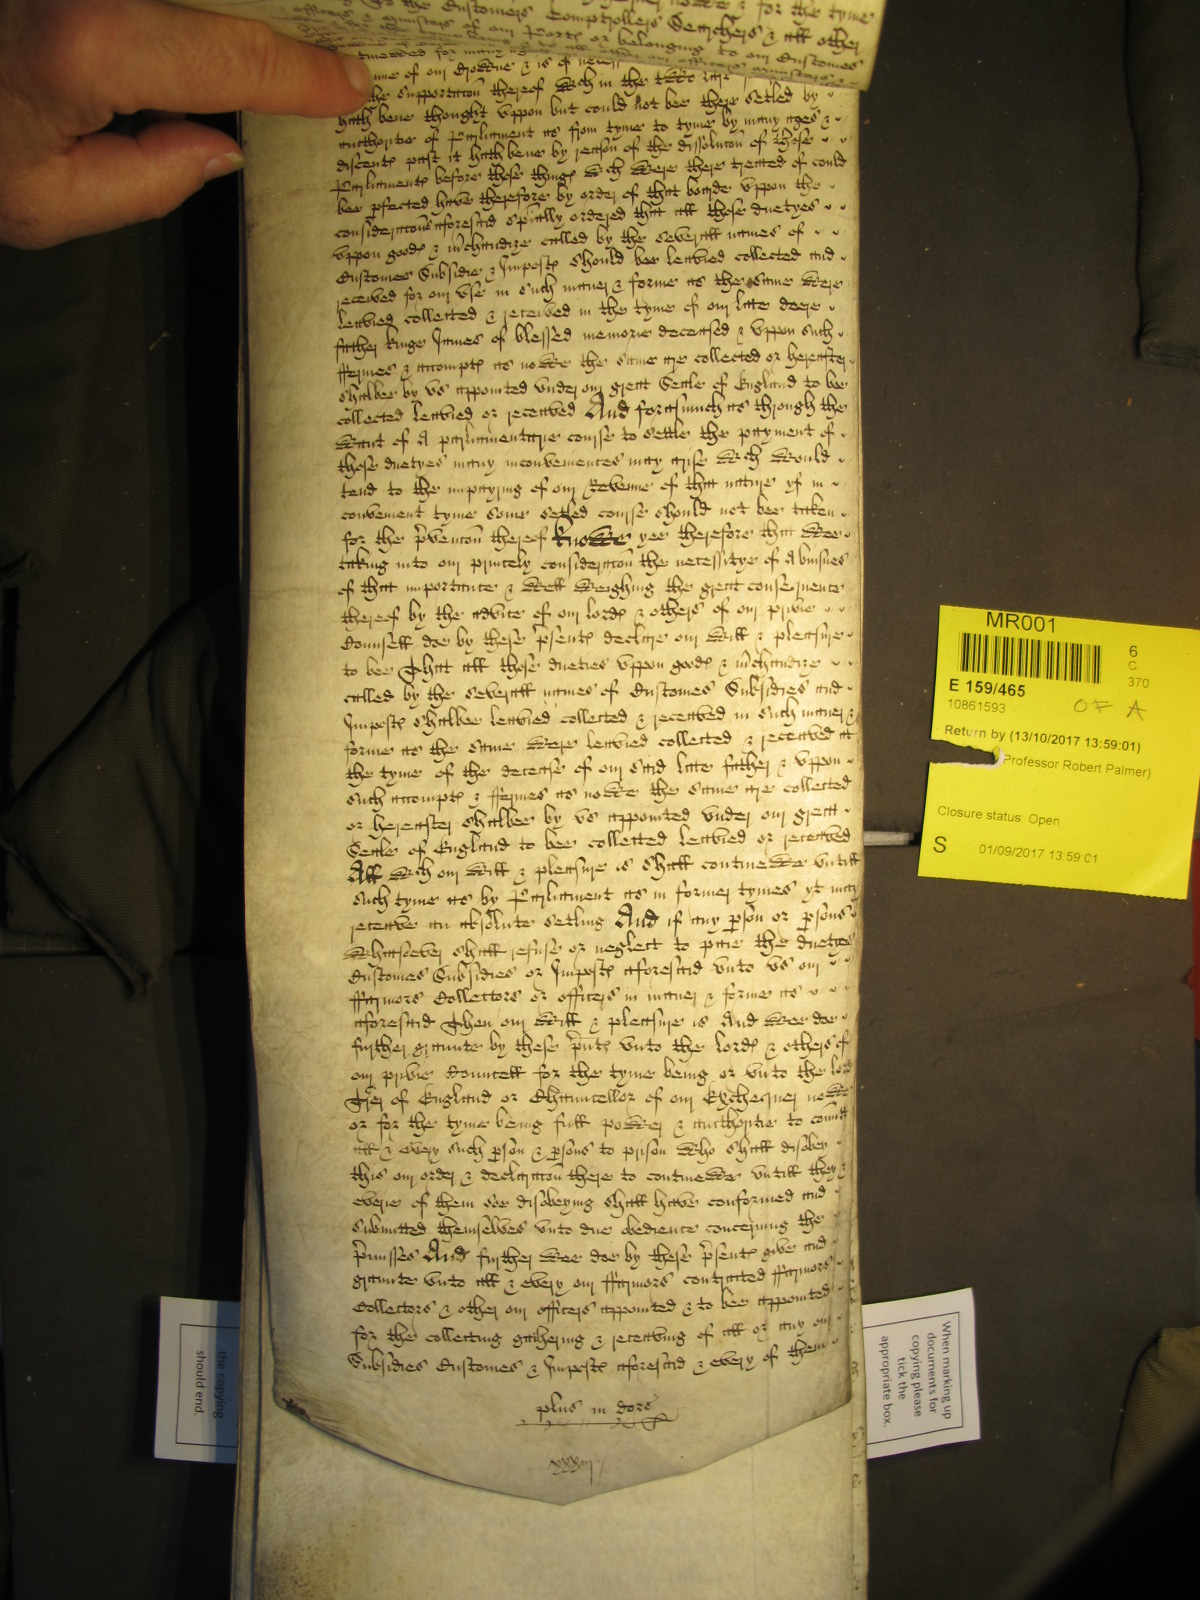 to the Customers Comptrollers Searchers & all other
officers & ministers of our Ports or belonging to our Customes
of our Crowne & is of
the supportacon thereof wch in the two late
hath bene thought vppon but could not bee there setled by
authoritie of Parliament as from tyme to tyme by many ages &
discents past it hath bene by reason of the dissolucon of those
Parliaments before those things wch were there treated of could
bee pfected have therefore by order of that boarde vppon the
consideracons aforesaid spially ordered that all those duetyes
vppon goods & mchandize called by the severall names of
Customes Subsidie & Imposts should bee leavied collected and
received for our vse in such maner & forme as the same were
leavied collected & received in the tyme of our late deere
father Kinge James of blessed memorie deceased & vppon such
ffermes & accompts as nowe the same are collected or hereafter
shalbee by vs appointed vnder our great Seale of England to bee
collected leavied or received And forasmuch as through the
want of A parliamentarie course to settle the payment of
those duetyes many inconveniences may arise wch would
tend to the impayring of our Revenue of that nature yf in
convenient tyme some setled course should not bee taken
for the pvencon thereof Knowe yee therefore that wee
taking into our princely consideracon the necessitye of A busines
of that importance & well weighing the great consequence
thereof by the advice of our lords & others of our privie
Counsell doe by these psents declare our will & pleasure
to bee That all those dueties vppon goods & mchandize
called by the severall names of Customes Subsidies and
Imposts shalbee leavied collected & received in such maner &
forme as the same were leavied collected & received at
the tyme of the decease of our said late father & vppon
such accompts & ffermes as nowe the same are collected
or hereafter shalbee by vs appointed vnder our great
Seale of England to bee collected leavied or received
All wch our will & pleasure is shall continewe vntill
such tyme as by Parliament as in former tymes yt may
receave an absolute setling And if any pson or psons
whatsoever shall refuse or neglect to paie the duetyes
Customes Subsidies or Imposts aforesaid vnto vs our
ffarmors Collectors or officers in maner & forme as
aforesaid Then our will & pleasure is And wee doe
further graunte by these pnts vnto the lords & others of
our privie Councell for the tyme being or vnto the lord
Trer of England or Chauncellor of our Exchequer nowe
or for the tyme being full power & authoritie to comitt
all & every such pson & psons to prison who shall disobey
this our order & declaracon there to continewe vntill they &
everie of them soe disobeying shall have conformed and
submitted themselves vnto due obedience concerning the
pmisses And further wee doe by these psents give and
graunte vnto all & every our ffarmors contracted ffarmors
Collectors & other our officers appointed & to bee appointed
for the collecting gathering & receaving of all or any our
Subsidies Customes & Imposts aforesaid & every of them
plus in dors
xxxiij
MR001
6
C
370
E 159/465
10861593
OF A
Return by (13/10/2017 13:59:01)
Professor Robert Palmer)
Closure status: Open
S
01/09/2017 13:59:01
When marking up
documents for
copying please
tick the
appropriate box.
the copying
should end.